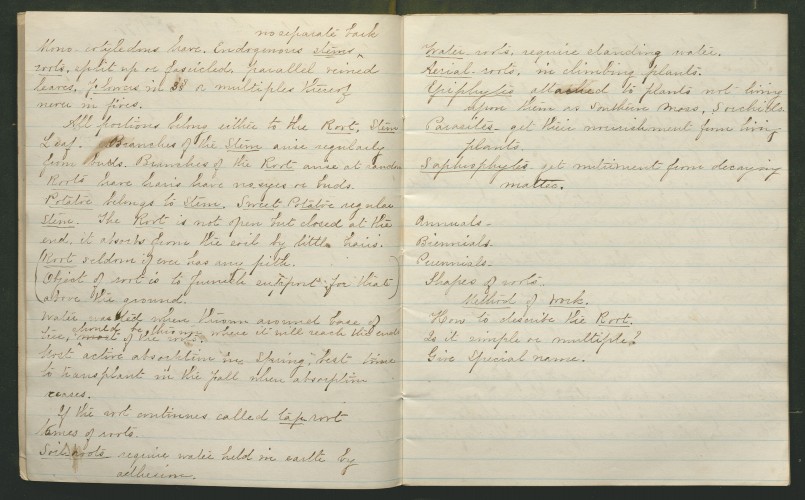 no separate bark
Mono-cotyledons have, Endogenous stems,
roots, split up or fascicled, parallel veined
leaves, flowers in 3s or multiples thereof
never in fives.
All portions belong either to the Root, Stem
Leaf. Branches of the Stem arise regularly
from buds. Branches of the Root arise at random
Roots have hairs have no eyes or buds.
Potatoe belongs to Stem, Sweet Potatoe regular
stem. The Root is not open but closed at the
end, it absorbs from the soil by little hairs.
(Root seldom if ever has any pith.
Object of root is to furnish support for that
above the ground.)
Water wasted when thrown around base of
tree, should be thrown where it will reach the end
of the roots.
Most active absorbtion in Spring, best time
to transplant in the fall when absorption
ceases.
If the root continues called tap root
Names of roots.
Soil-roots require water held in earth by
adhesion.
Water-roots, require standing water.
Aerial-roots, in climbing plants.
Epiphytes attached to plants not living
upon them as Southern Moss, & orchids.
Parasites-get their nourishment from living
plants.
Saphrophytes get nutriment from decaying
matter.
Annuals-
Biennials-
Perennials-
Shapes of roots.
Method of work.
How to describe the Root.
Is it simple or multiple?
Give special name.